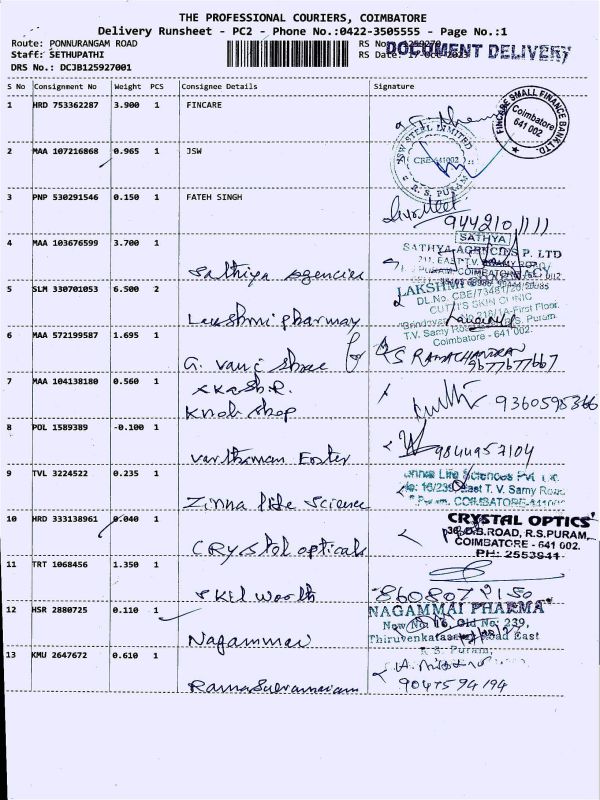 THE PROFESSIONAL COURIERS, COIMBATORE
Delivery Runsheet - PC2 - Phone No.:0422-3505555 - Page No.:1
Route: PONNURANGAM ROAD
RS No.
DOCUMENT DELIVERY
Staff: SETHUPATHI
RS Date:
DRS No.: DCJB125927001
S No Consignment No Weight PCS Consignee Details Signature
1 HRD 753362287 3.900 1 FINCARE
FINCARE SMALL FINANCE BANK LTD.
Coimbatore
641 002
2 MAA 107216868 0.965 1 JSW
JSW STEEL LIMITED
CBE-641002
R. S. PURAM
3 PNP 530291546 0.150 1 FATEH SINGH
9442101111
4 MAA 103676599 3.700 1 Sathiya Agencies
SATHYA
SATHYA AGENCIES P. LTD
5 SLM 330701053 6.500 2 Lakshmi pharmay
LAKSHMI
CUTIS SKIN CLINIC
First Floor,
T.V. Samy Road
Puram,
Coimbatore - 641 002.
6 MAA 572199587 1.695 1 G. vani shree
S RAMACHANDRAN
9677677667
7 MAA 104138180 0.560 1
Knob shop
9360598366
8 POL 1589389 -0.100 1 Varthaman
9844957104
9 TVL 3224522 0.235 1 Zinna life science
Life Sciences Pvt Ltd.
East T. V. Samy Road
COIMBATORE
10 HRD 333138961 0.040 1 Crystal opticals
CRYSTAL OPTICS
D.B.ROAD, R.S.PURAM,
COIMBATORE - 641 002.
PH: 2553941
11 TRT 1068456 1.350 1 SKIL worth
8608072150
12 HSR 2880725 0.110 1 Nagammai
NAGAMMAI PHARMA
New No: 16, Old No: 239,
Road East
R. S. Puram,
13 KMU 2647672 0.610 1 Ramasubramaniam
9047594194